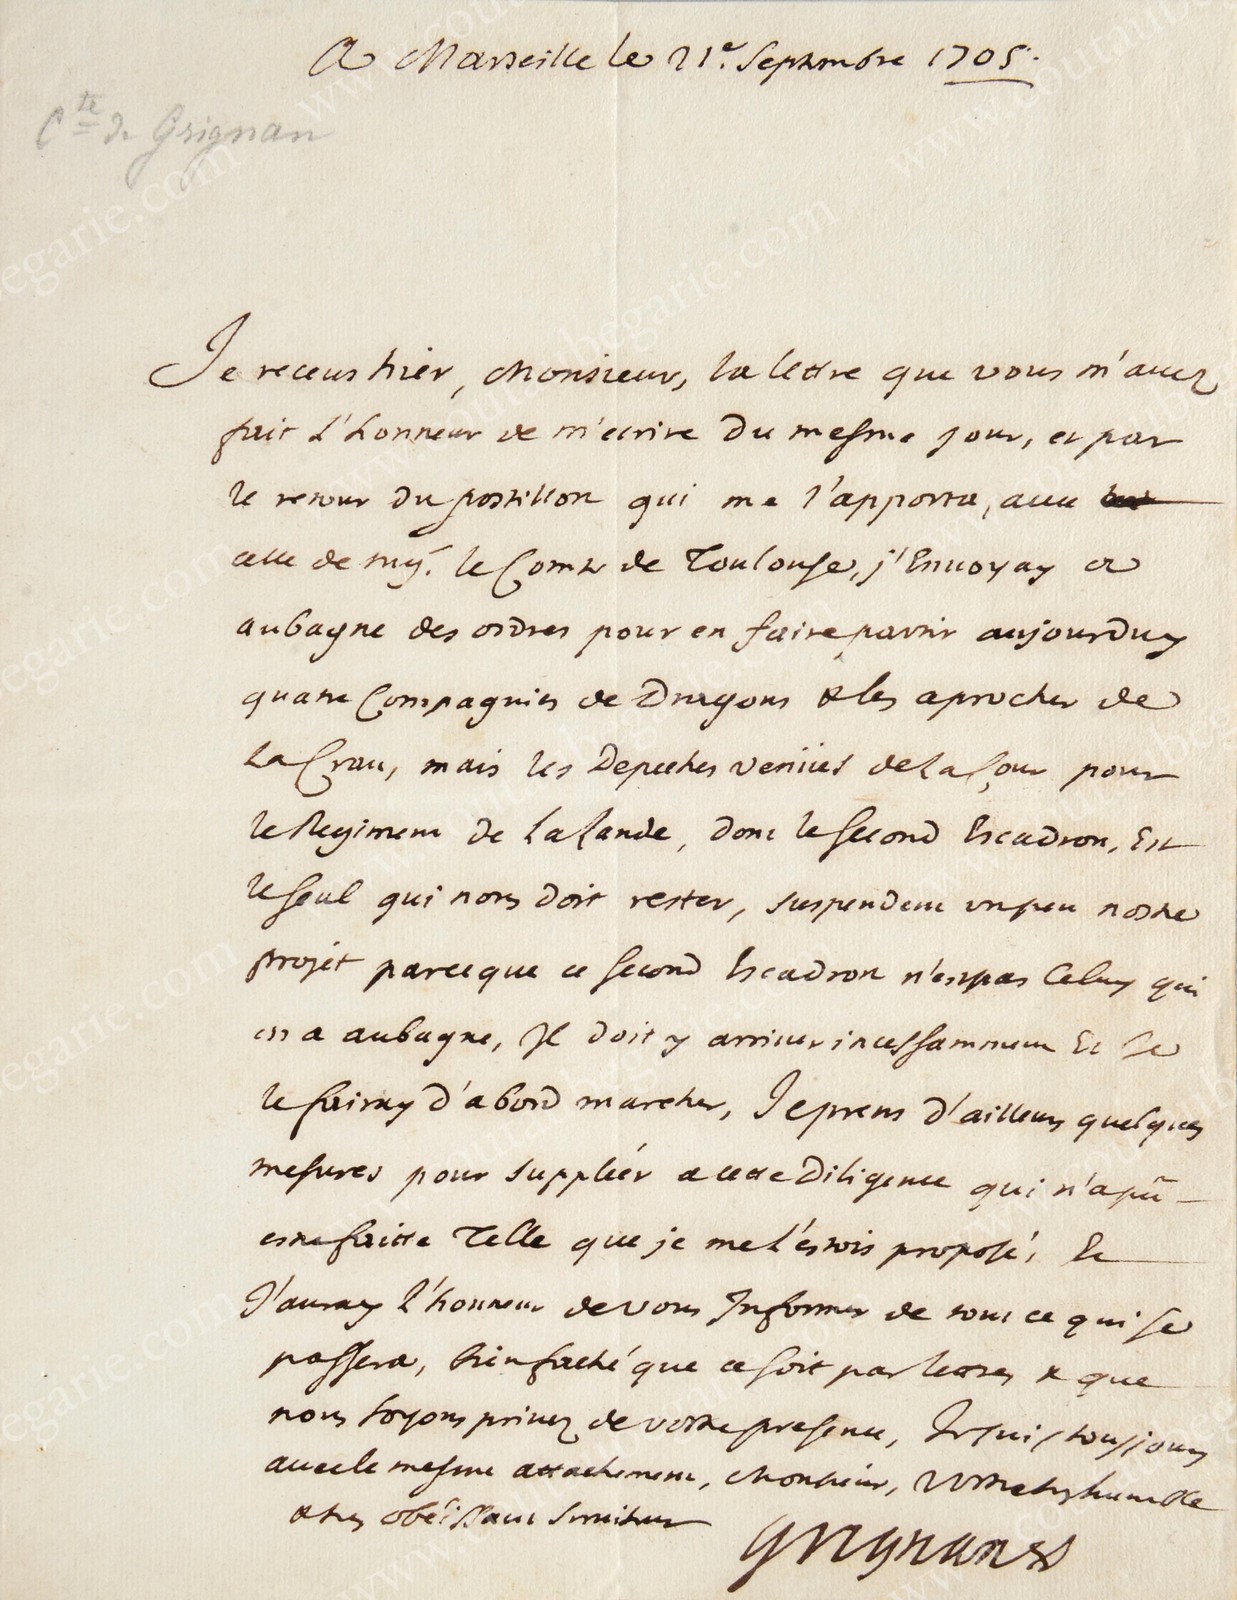 A Marseille le 21e. Septembre 1705.
Cte de Grignan
Je receus hier, Monsieur, la lettre que vous m'avez
fait l'honneur de m'ecrire du mesme jour, et par
le retour du postillon qui me l'apporta, avec
celle de mgr. le Comte de Toulouse, j'Envoyay a
aubagne des ordres pour en faire partir aujourduy
quatre Compagnies de Dragons & les aprocher de
La Crau, mais les Depeches venües de la Cour pour
le Regiment de La lande, dont le second Escadron, Est
le seul qui nous doit rester, suspendent un peu nostre
projet parce que ce second Escadron n'est pas Celuy qui
est a aubagne, Il doit y arriver incessamment Et je
le fairay d'abord marcher, Je prens d'ailleurs quelques
mesures pour supplier a cette Diligence qui n'a pû
estre faitte Telle que je me l'estois proposé, Et
J'auray l'honneur de vous Informer de tout ce qui se
passera, bien faché que ce soit par lettres & que
nous soyons privez de vostre presence, Je suis tousjours
avec le mesme attachement, Monsieur, Vostre tres humble
& tres obeissant serviteur
Grignan
www.coutaubegarie.com